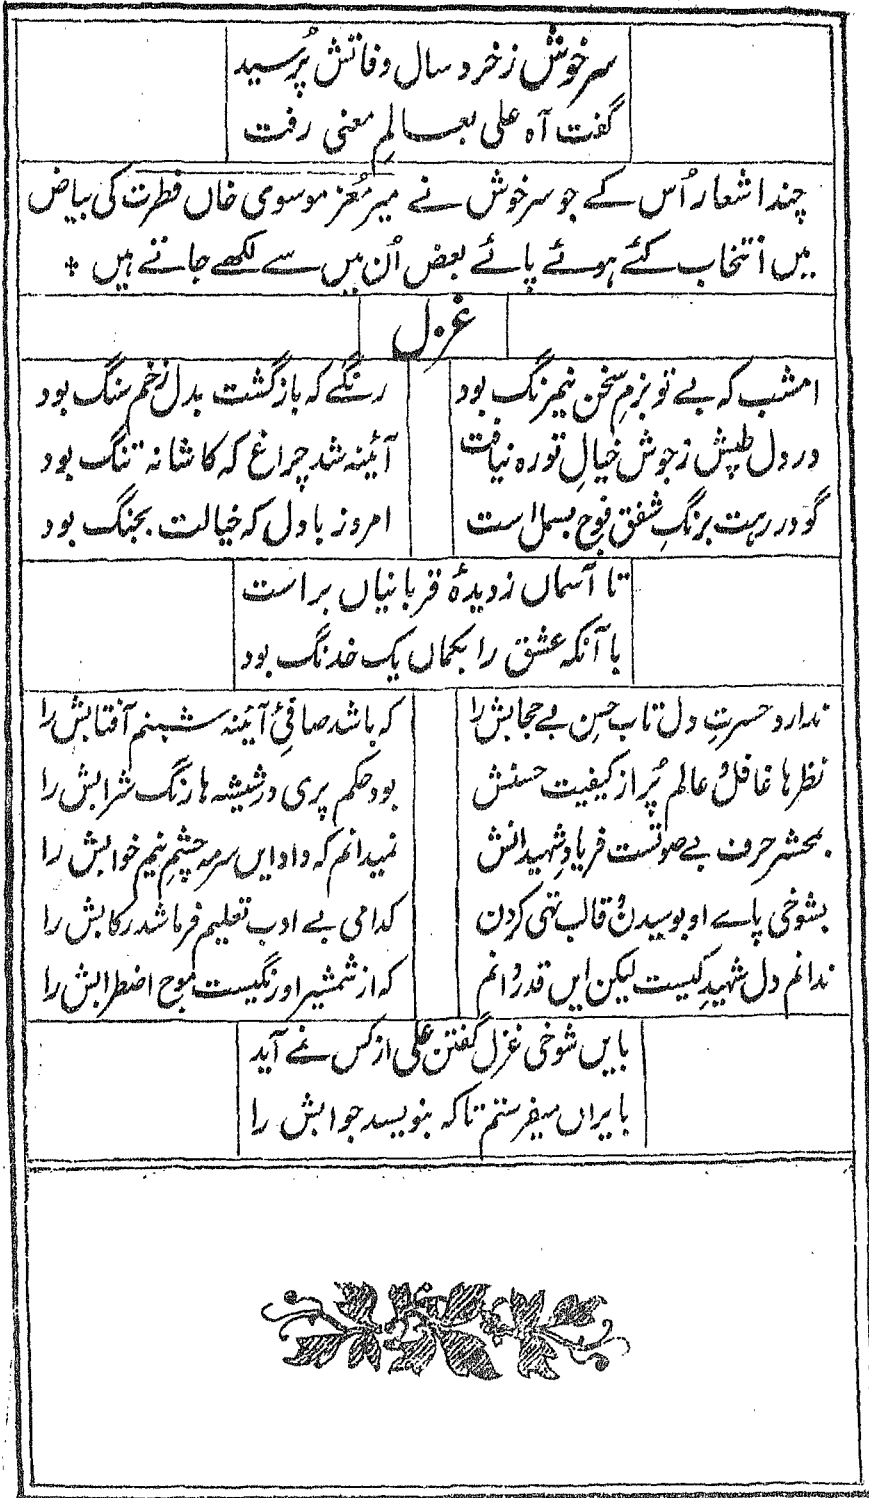 سرخوش زخرد سال وفاتش پُرسید
گفت آہ علی بعالمِ معنی رفت
چند اشعار اُس کے جو سرخوش نے میر مُعز موسوی خاں فطرت کی بیاض
میں انتخاب کئے ہوئے پائے بعض اُن میں سے لکھے جاتے ہیں ٭
غزل
امشب کہ بے تو بزمِ سخن نیمرنگ بود رنگے کہ بازگشت بدل زخم سنگ بود
در دل طپش زجوش خیالِ تو رہ نیافت آئینہ شد چراغ کہ کاشانہ تنگ بود
گو در رہت برنگِ شفق فوج بسمل است امروز با دل کہ خیالت بجنگ بود
تا آسماں زدیدۂ قربانیاں براست
با آنکہ عشق را بکماں یک خدنگ بود
ندارد حسرتِ دل تاب حسن بے حجابش را کہ باشد صافیِٔ آئینہ شبنم آفتابش را
نظرہا غافل و عالم پُر از کیفیت حسنش بود حکم پری در شیشہ ہا رنگ شرابش را
بمحشر حرف بے صوتست فریادِ شہیدانش نمیدانم کہ داد ایں سرمہ چشمِ نیم خوابش را
بشوخی پاے او بوسیدن و قالب تہی کردن کدامی بے ادب تعلیم فرما شد رکابش را
ندانم دل شہیدِ کیست لیکن ایں قدر دانم کہ از شمشیر او رنگیست موج اضطرابش را
بایں شوخی غزل گفتن علی از کس نمے آید
بایراں میفرستم تا کہ بنویسد جوابش را